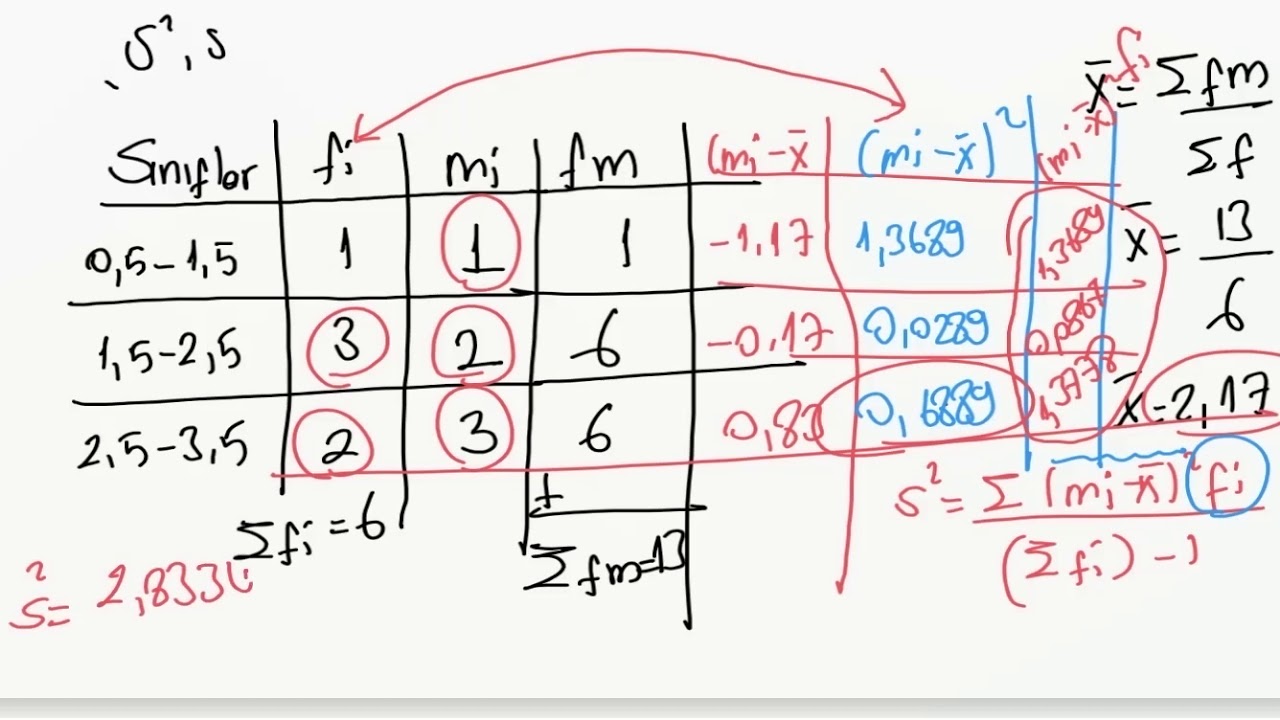 , S², s
Sınıflar fi mi fm (mi-x̄ (mi-x̄)² (mi-x̄) fi
0,5-1,5 1 1 1 -1,17 1,3689 1,3689
1,5-2,5 3 2 6 -0,17 0,0289 0,0867
2,5-3,5 2 3 6 0,83 0,6889 1,3778
Σfi=6
+
Σfm=13
x̄= Σfm
Σf
x̄= 13
6
x̄=2,17
s²= Σ(mi-x̄)² fi
(Σfi)-1
s²= 2,8334